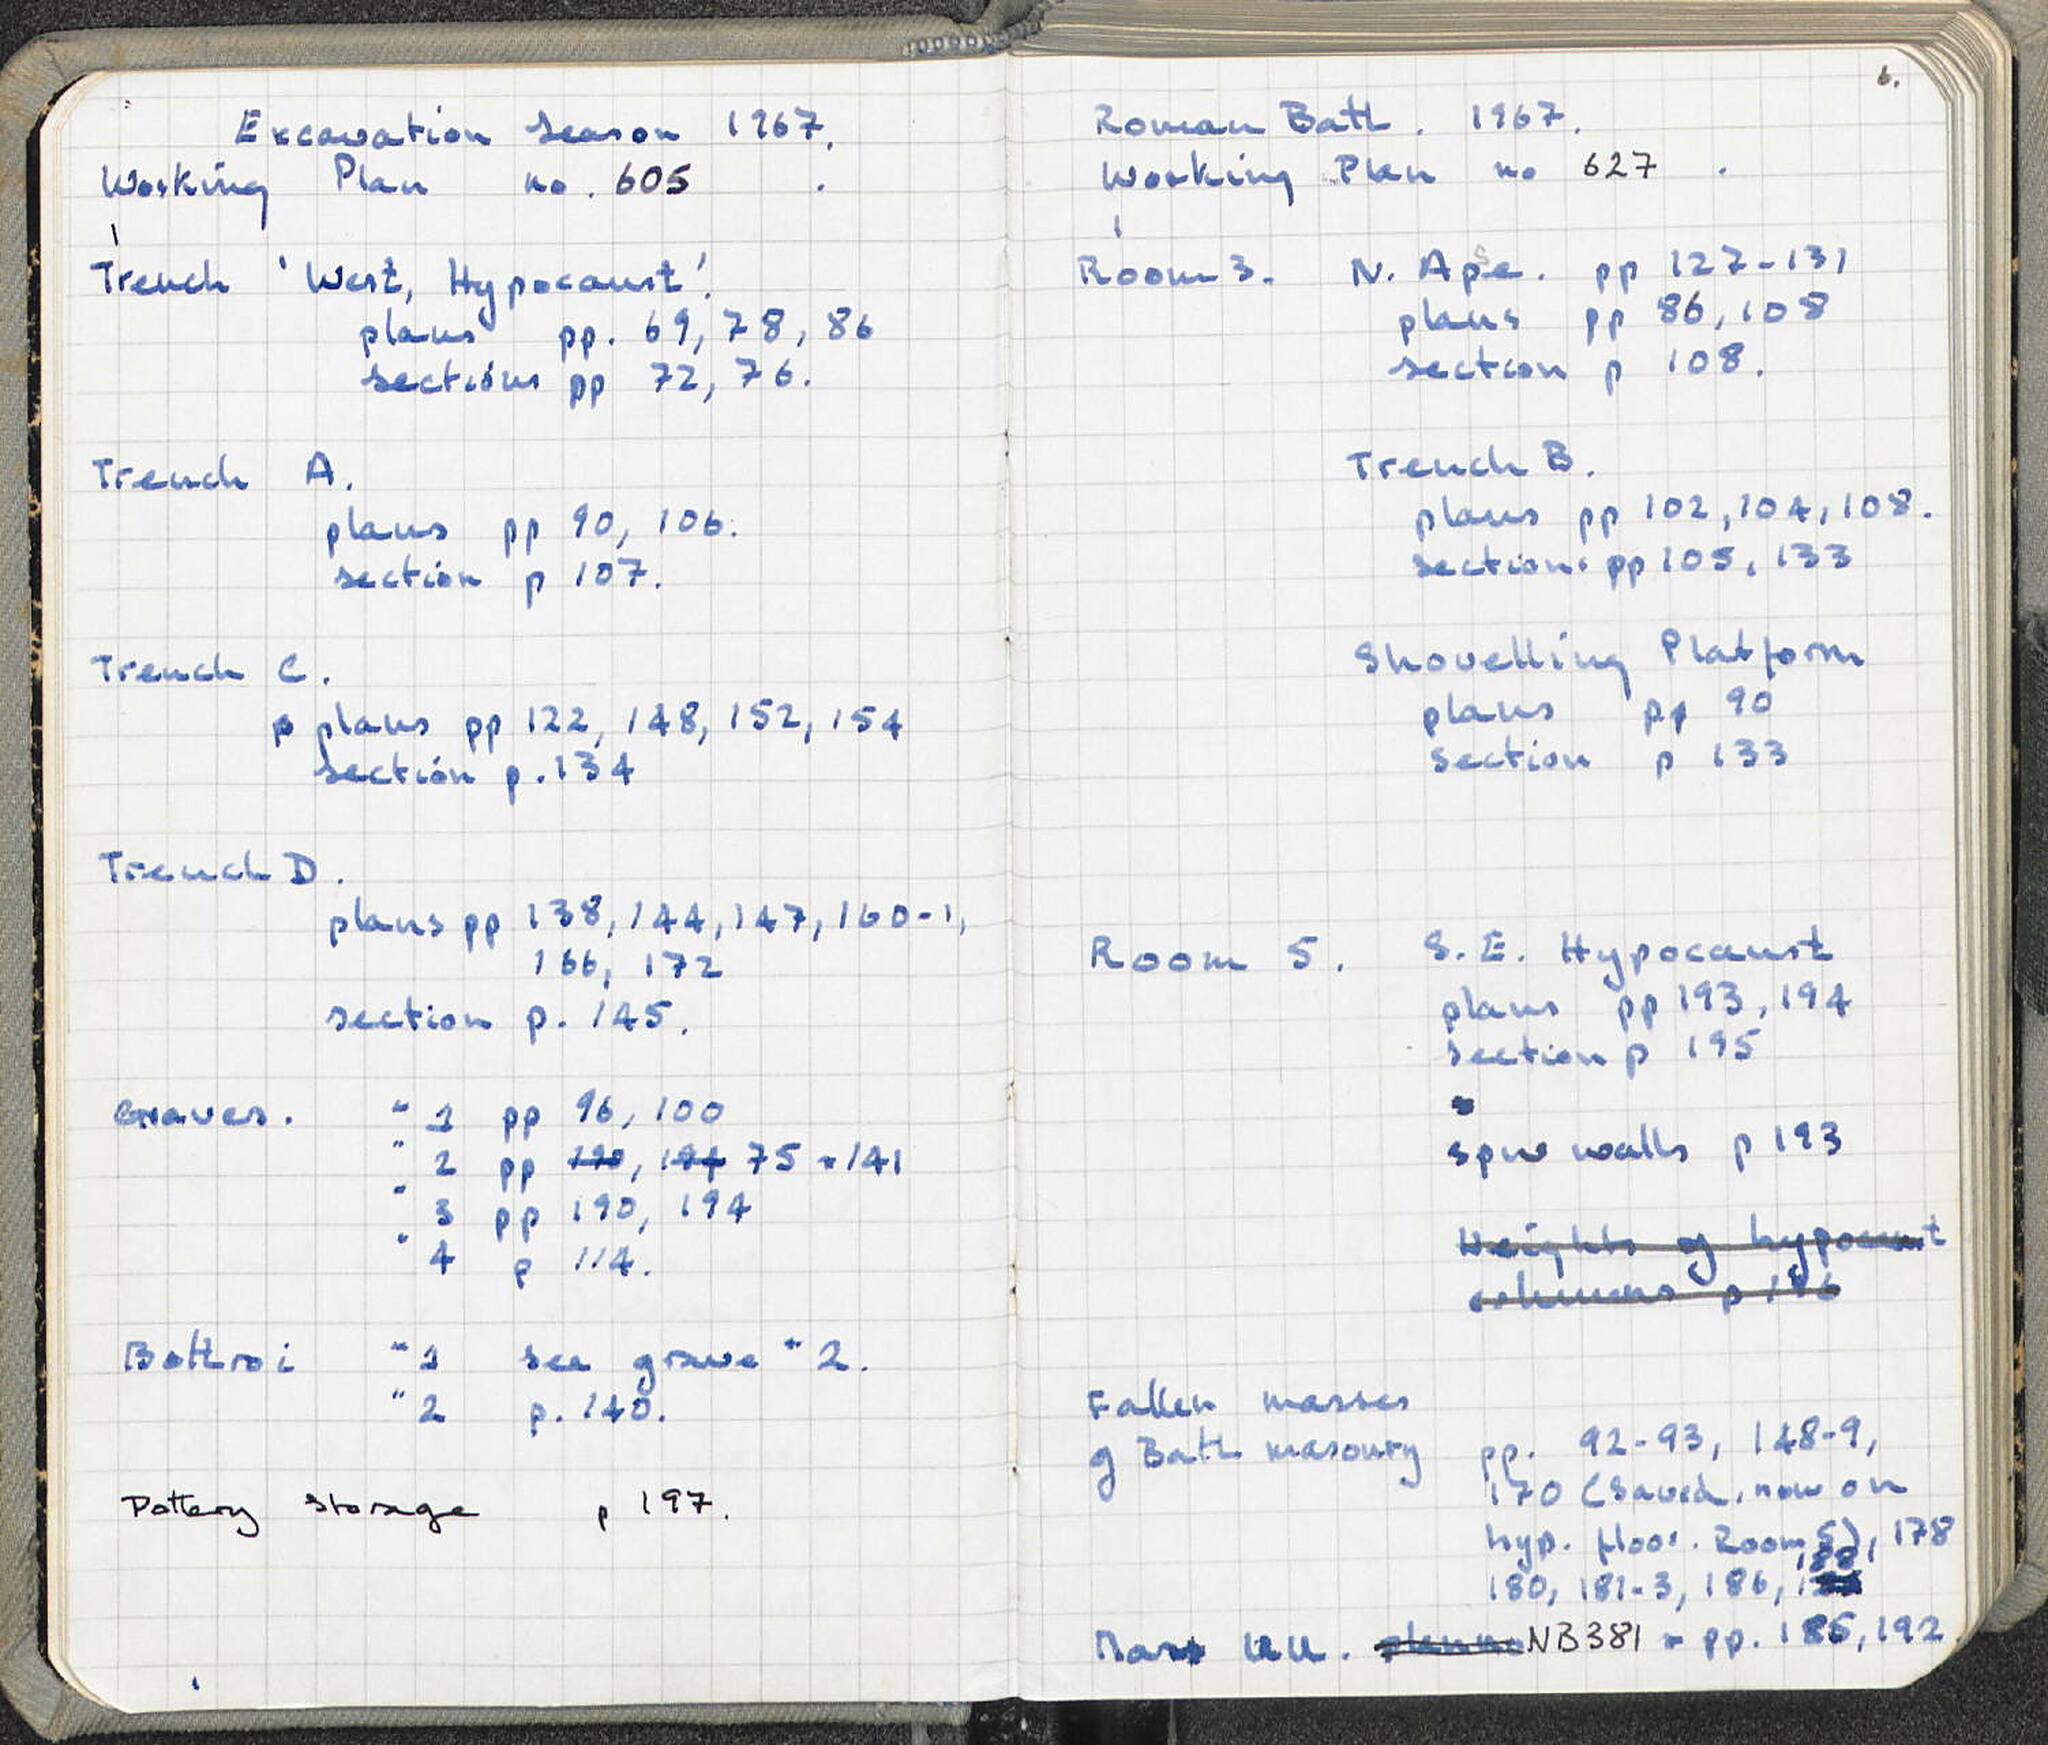 Excavation Season 1967.
Working Plan no. 605 .
Trench 'West, Hypocaust'.
plans pp. 69, 78, 86
sections pp 72, 76.
Trench A.
plans pp 90, 106.
section p 107.
Trench C.
plans pp 122, 148, 152, 154
section p. 134
Trench D.
plans pp 138, 144, 147, 160-1,
166, 172
section p. 145.
Graves. " 1 pp 96, 100
" 2 pp 190, 194 75 - 141
" 3 pp 190, 194
" 4 p 114.
Bothroi " 1 see grave " 2.
" 2 p. 140.
Pottery storage p 197.
6.
Roman Bath. 1967.
Working Plan no 627 .
Room 3. N. Apse. pp 127-131
plans pp 86, 108
section p 108.
Trench B.
plans pp 102, 104, 108.
sections pp 105, 133
Shovelling Platform
plans pp 90
section p 133
Room 5. S.E. Hypocaust
plans pp 193, 194
section p 195
spur walls p 193
Heights of hypocaust
columns p 196
Fallen masses
of Bath masonry pp. 92-93, 148-9,
170 (Saved, now on
hyp. floor. Room 5), 178
180, 181-3, 186, 188
NB381 - pp. 185, 192.